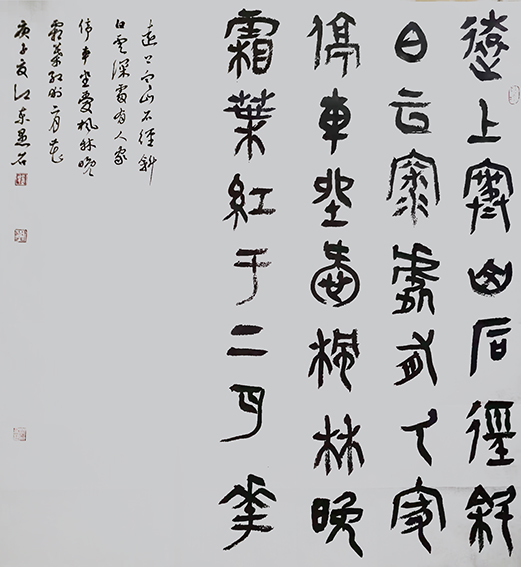 遠上寒山石徑斜
白云深處有人家
停車坐愛楓林晚
霜葉紅于二月花
遠上寒山石徑斜
白雲深處有人家
停車坐愛楓林晚
霜葉紅於二月花
庚子夏江東愚石